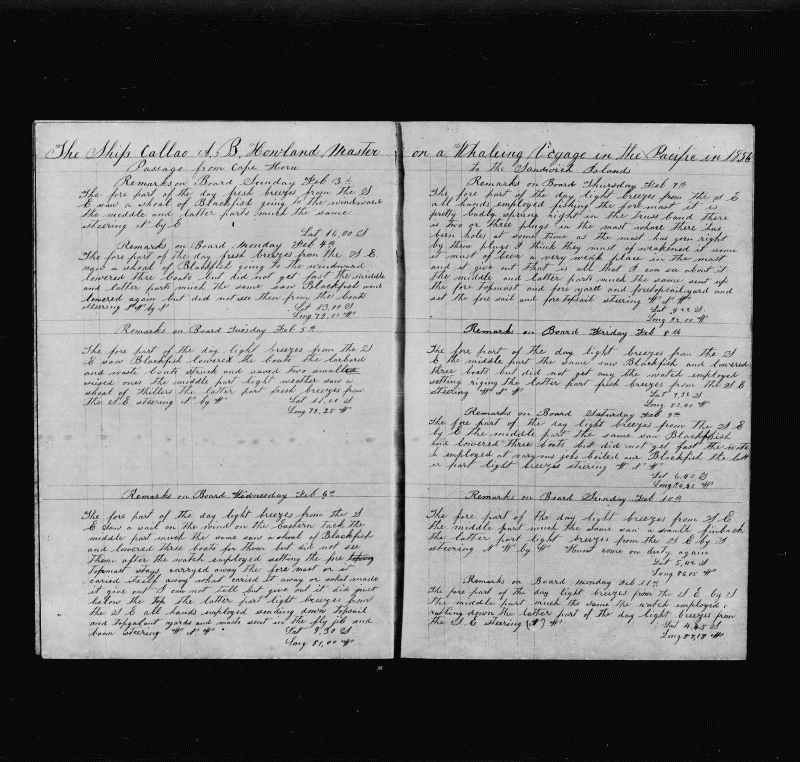 The Ship Callao A. B. Howland Master
Passage from Cape Horn
Remarks on Board Sunday Feb 3d
The fore part of the day fresh breezes from the S
E saw a shoal of Blackfish going to the windward
the middle and latter parts much the same
steering N by E
Lat 16,00 S
Remarks on Board Monday Feb 4th
The fore part of the day fresh breezes from the S E.
saw a shoal of Blackfish going to the windward
lowered three boats but did not get fast the middle
and latter part much the same saw Blackfish and
lowered again but did not see them from the boats
steering N W by N
Lat 13,00 S
Long 79,00 W
Remarks on Board Tuesday Feb 5th
The fore part of the day light breezes from the S
E saw Blackfish lowered the boats the larbord
and waste boats struck and saved two small
sised ones the middle part light weather saw a
shoal of Killers the latter part fresh breezes from
the S E steering N by W
Lat 11,00 S
Long 79,25 W
Remarks on Board Wednesday Feb 6th
The fore part of the day light breezes from the S
E saw a sail on the wind on the Eastern tack the
middle part much the same saw a shoal of Blackfish
and lowered three boats for them but did not see
them after the watch employed setting the fore
Topmast stays carryed away the fore mast or it
caried itself away what caried it away or what made
it give out I can not tell but give out it did just
below the Top the latter part light breezes from
the S E all hands employed sending down Topsail
and topgalant yards and masts sent in the fly jib and
boom steering W N W
Lat 9,30 S
Long 81,00 W
on a Whaleing Voyage in the Pacific in 1856
to the Sandwich Islands
Remarks on Board Thursday Feb 7th
The fore part of the day light breezes from the S E
all hands employed fishing the fore mast it is
pretty badly sprung hight in the truss band there
is two or three plugs in the mast where there has
been holes at some time as the mast has gorn right
by them plugs I think they must of weakened it some
it must of been a very weak place in the mast
and is give out that is all that I can see about it
the middle and latter parts much the same sent up
the fore topmast and fore yard and foretopsailyard and
set the fore sail and fore topsail steering W N W
Lat 9,22 S
Long 82,00 W
Remark on Board Friday Feb 8th
The fore part of the day light breezes from the S
E the middle part the same saw Blackfish and lowered
three boats but did not get any the watch employed
setting riging the latter part fresh breezes from the S E
steering W N W
Lat 7,32 S
Long 83,40 W
Remarks on Board Saturday Feb 9th
The fore part of the day light breezes from the S E
by E the middle part the same saw Blackfish
and lowered three boats but did not get fast the watc
h employed at varyous jobs boiled our Blackfish the latt
er part light breezes steering W N W
Lat 6,40 S
Long 84,45 W
Remarks on Board Sunday Feb 10th
The fore part of the day light breezes from S E
the middle part much the same saw a small finback
the latter part light breezes from the S E by S
steering N W by W Hunt come on duty again
Lat 5,42 S
Long 86,05 W
Remarks on Board Monday Feb 11th
The fore part of the day light breezes from the S E by S
the middle part much the same the watch employed
ratling down the latter part of the day light breezes from
the S E steering (N) W
Lat 4,45 S
Long 87,18 W